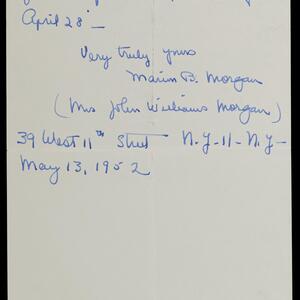 April 28 —
Very truly yours
Marion B. Morgan
(Mrs John Williams Morgan)
39 West 11th Street N.Y-11-N.Y-
May 13, 1952